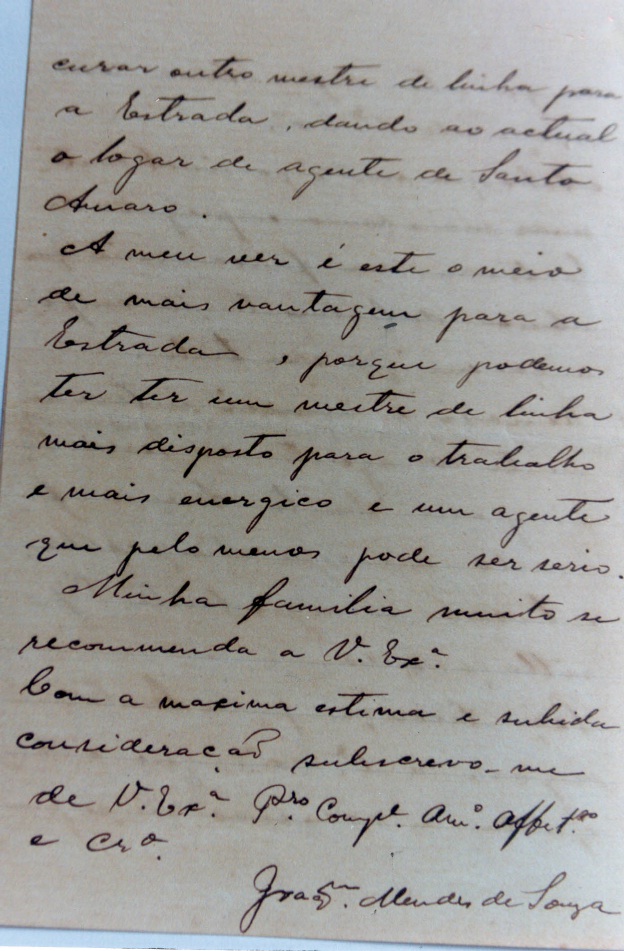 curar outro mestre de linha para
a Estrada, dando ao actual
o logar de agente de Santo
Amaro.
A meu ver é este o meio
de mais vantagem para a
Estrada, porque podemos
ter ter um mestre de linha
mais disposto para o trabalho
e mais energico e um agente
que pelo menos pode ser serio.
Minha familia muito se
recommenda a V. Exª.
Com a maxima estima e subida
consideração subscrevo-me
de V. Exª. Pro. Compe. Amº. Affetuo
e Crº.
Mendes de Souza